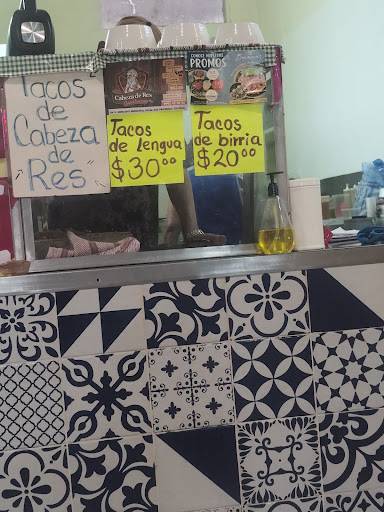 Tacos
de
Cabeza
de
Res
Cabeza de Res
CONOCE NUESTRAS
PROMOS
Tacos
de lengua
$30.00
Tacos
de birria
$20.00